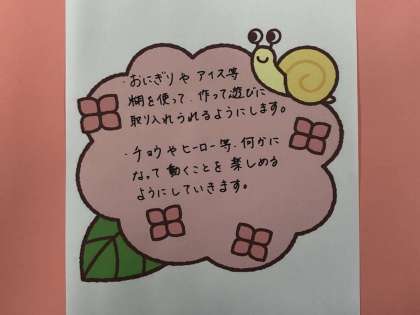 ・おにぎりや アイス等
糊を使って、作って遊びに
取り入れられるようにします。
・チョウやヒーロー等・何かに
なって動くことを楽しめる
ようにしていきます。